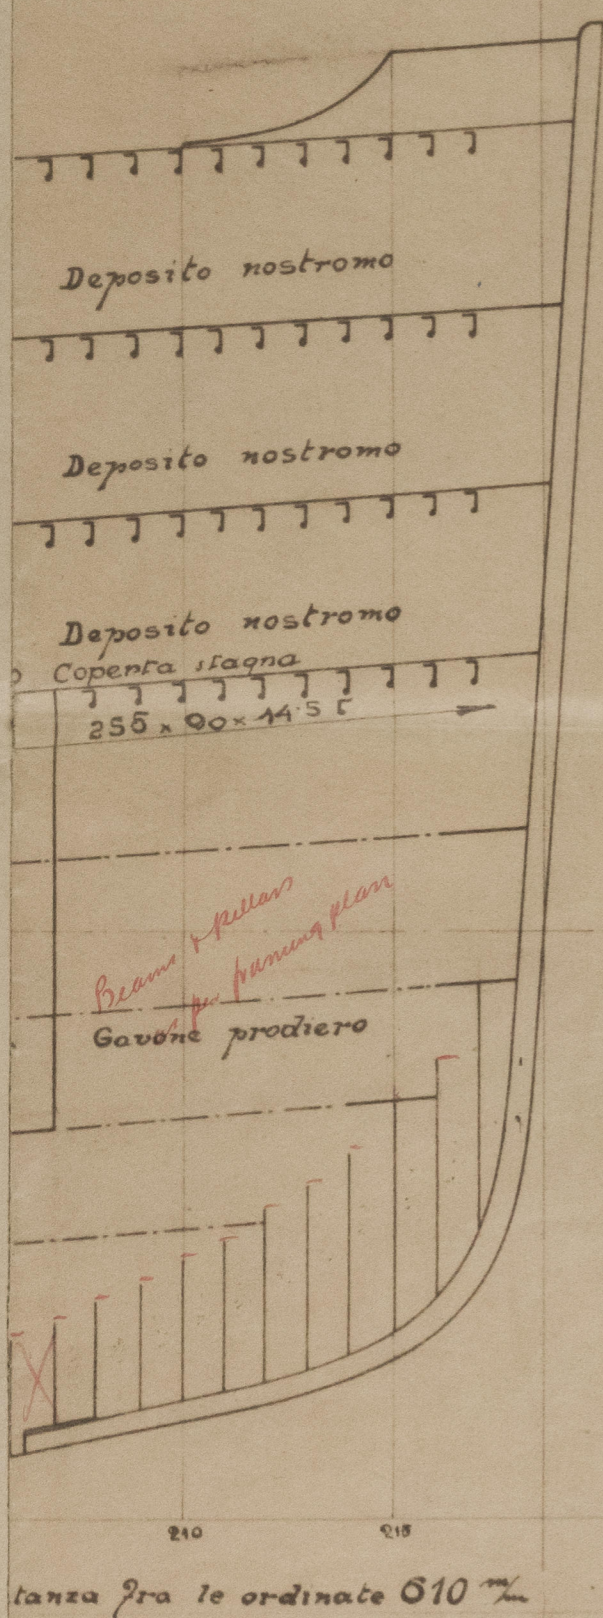 Deposito nostromo
Deposito nostromo
Deposito nostromo
Coperta stagna
255 x 90 x 14.5 [
Beams & pillars
as per framing plan
Gavone prodiero
210 215
tanza fra le ordinate 610 m/m